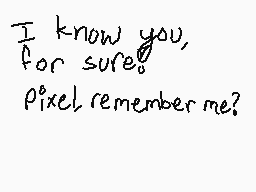 I know you,
for sure!
Pixel, remember me?